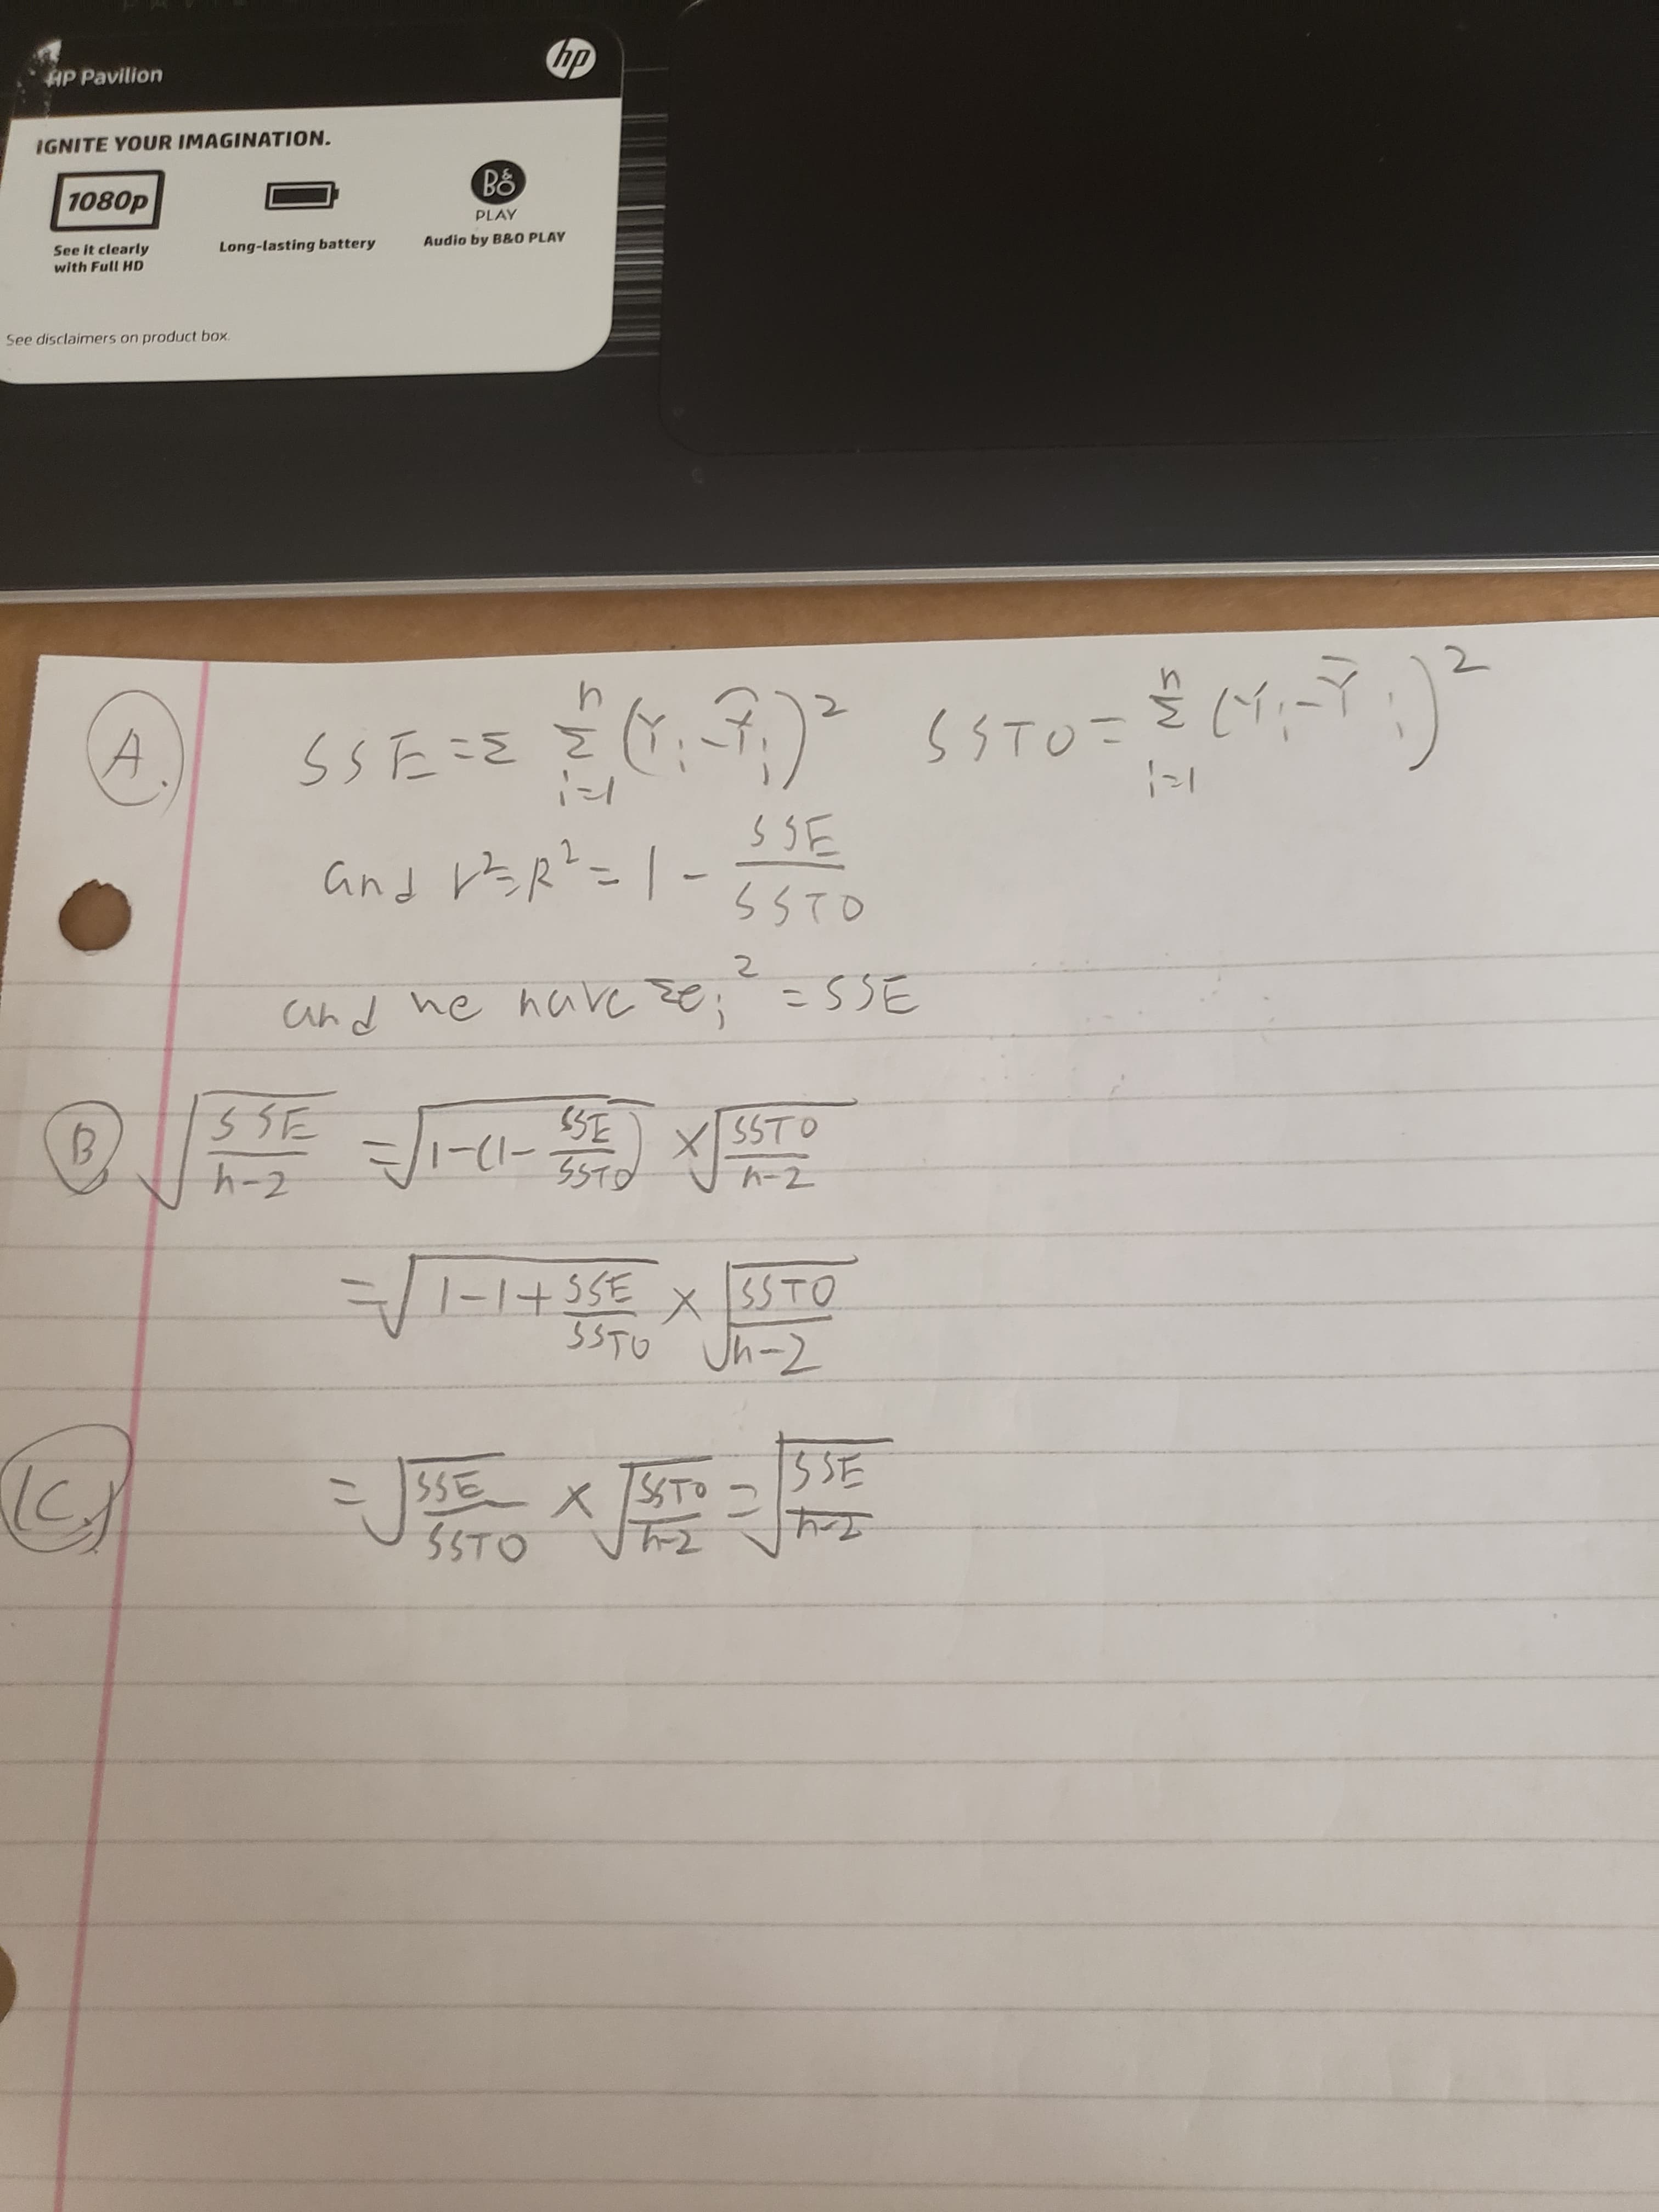 HP Pavilion
hp
IGNITE YOUR IMAGINATION.
1080p
See it clearly
with Full HD
Long-lasting battery
B&O
PLAY
Audio by B&O PLAY
See disclaimers on product box.
A. SSE = Σ Σ_{i=1}^{n} (Y_i - Ŷ_i)^2 SSTO = Σ_{i=1}^{n} (Y_i - Ȳ_i)^2
and r^2 = R^2 = 1 - SSE/SSTO
and we have Σe_i^2 = SSE
B √(SSE/n-2) = √(1-(1-SSE/SSTO) × √(SSTO/n-2)
= √(1-1+SSE/SSTO) × √(SSTO/n-2)
(C.) = √(SSE/SSTO) × √(SSTO/n-2) = √(SSE/n-2)